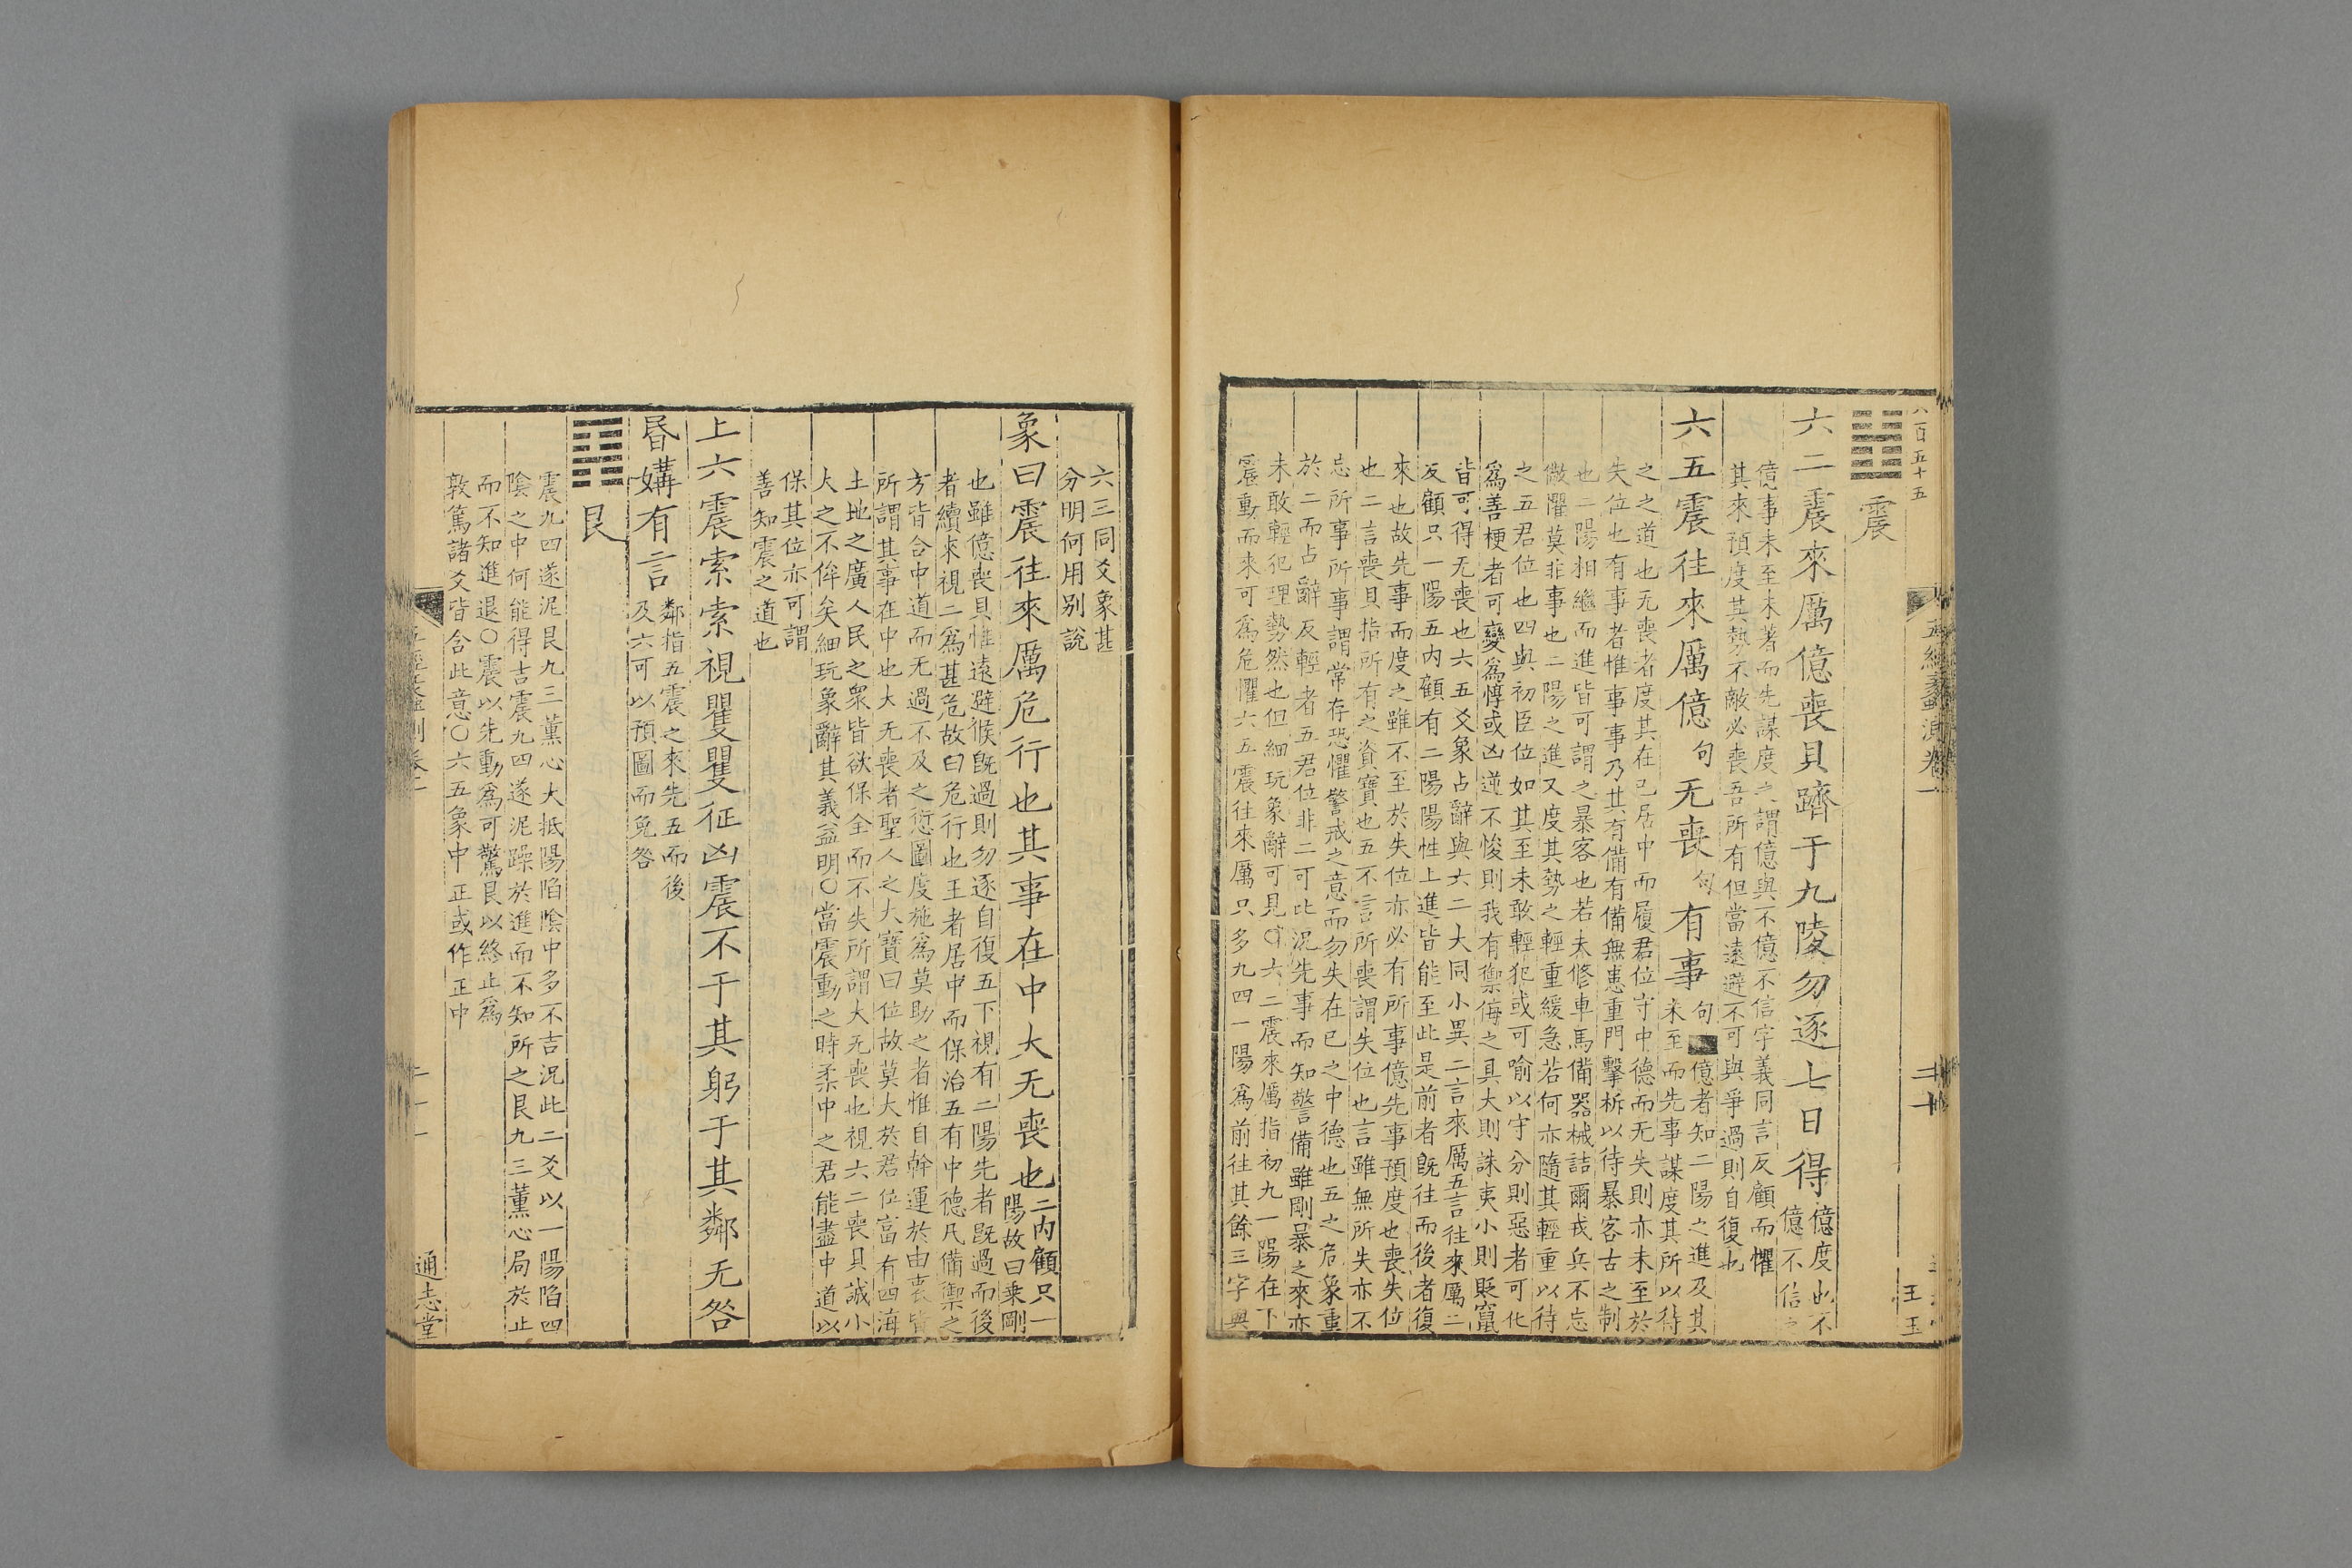 八百五十五
五經蠡測卷一
二十
王玉
震
六二震來厲億喪貝躋于九陵勿逐七日得
億度也不
億不信之
億事未至未著而先謀度之謂億與不億不信字義同言反顧而懼
其來預度其勢不敵必喪吾所有但當遠避不可與爭過則自復也
六五震往來厲億句无喪句有事句
億者知二陽之進及其
未至而先事謀度其所以待
之之道也无喪者度其在己居中而履君位守中德而无失則亦未至於
失位也有事者惟事事乃其有備有備無患重門擊柝以待暴客古之制
也二陽相繼而進皆可謂之暴客也若夫修車馬備器械詰爾戎兵不忘
儆懼莫非事也二陽之進又度其勢之輕重緩急若何亦隨其輕重以待
之五君位也四與初臣位如其至未敢輕犯或可喻以守分則惡者可化
爲善梗者可變爲惇或凶逆不悛則我有禦侮之具大則誅夷小則貶竄
皆可得无喪也六五爻象占辭與六二大同小異二言來厲五言往來厲二
反顧只一陽五內顧有二陽陽性上進皆能至此是前者旣往而後者復
來也故先事而度之雖不至於失位亦必有所事億先事預度也喪失位
也二言喪貝指所有之資寶也五不言所喪謂失位也言雖無所失亦不
忘所事所事謂常存恐懼警戒之意而勿失在已之中德也五之危象重
於二而占辭反輕者五君位非二可比況先事而知警備雖剛暴之來亦
未敢輕犯理勢然也但細玩象辭可見○六二震來厲指初九一陽在下
震動而來可爲危懼六五震往來厲只多九四一陽爲前往其餘三字與
六三同爻象甚
分明何用别說
象曰震往來厲危行也其事在中大无喪也
二內顧只一
陽故曰乗剛
也雖億喪貝惟遠避候旣過則勿逐自復五下視有二陽先者旣過而後
者續來視二爲甚危故曰危行也王者居中而保治五有中德凡備禦之
方皆合中道而无過不及之愆圖度施爲莫助之者惟自幹運於由衷皆
所謂其事在中也大无喪者聖人之大寶曰位故莫大於君位富有四海
土地之廣人民之衆皆欲保全而不失所謂大无喪也視六二喪貝誠小
大之不侔矣細玩象辭其義益明○當震動之時柔中之君能盡中道以
保其位亦可謂
善知震之道也
上六震索索視矍矍征凶震不于其躬于其鄰无咎
昏媾有言
鄰指五震之來先五而後
及六可以預圖而免咎
艮
震九四遂泥艮九三薰心大抵陽陷陰中多不吉況此二爻以一陽陷四
陰之中何能得吉震九四遂泥躁於進而不知所之艮九三薰心局於止
而不知進退○震以先動爲可驚艮以終止爲
敦篤諸爻皆合此意○六五象中正或作正中
二十一
通志堂